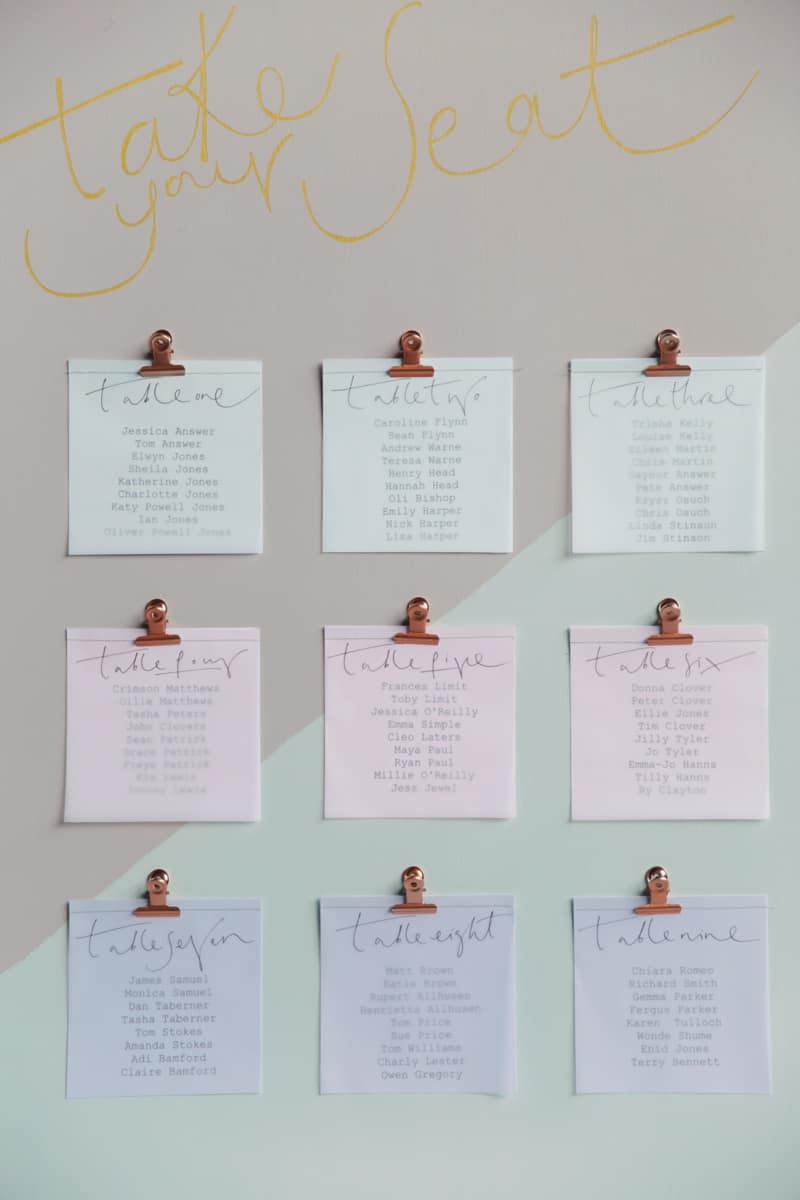 take
your Seat
table one
Jessica Answer
Tom Answer
Elwyn Jones
Sheila Jones
Katherine Jones
Charlotte Jones
Katy Powell Jones
Ian Jones
Oliver Powell Jones
table two
Caroline Flynn
Sean Flynn
Andrew Warne
Teresa Warne
Henry Head
Hannah Head
Oli Bishop
Emily Harper
Nick Harper
Lisa Harper
table three
Trisha Kelly
Louise Kelly
Eileen Martin
Chris Martin
Answer
Pete Answer
Osuch
Chris Osuch
Linda Stinson
Jim Stinson
table four
Crimson Matthews
Ollie Matthews
Tasha Peters
John Clovers
Sean Patrick
Grace Patrick
Freya Patrick
Kim Lewis
Lewis
table five
Frances Limit
Toby Limit
Jessica O'Reilly
Emma Simple
Cleo Laters
Maya Paul
Ryan Paul
Millie O'Reilly
Jess Jewel
table six
Donna Clover
Peter Clover
Ellie Jones
Tim Clover
Jilly Tyler
Jo Tyler
Emma-Jo Hanns
Tilly Hanns
Clayton
table seven
James Samuel
Monica Samuel
Dan Taberner
Tasha Taberner
Tom Stokes
Amanda Stokes
Adi Bamford
Claire Bamford
table eight
Matt Brown
Katie Brown
Rupert Allhusen
Henrietta Allhusen
Tom Price
Sue Price
Tom Williams
Charly Lester
Owen Gregory
table nine
Chiara Romeo
Richard Smith
Gemma Parker
Fergus Parker
Karen Tulloch
Wonde Shume
Enid Jones
Terry Bennett